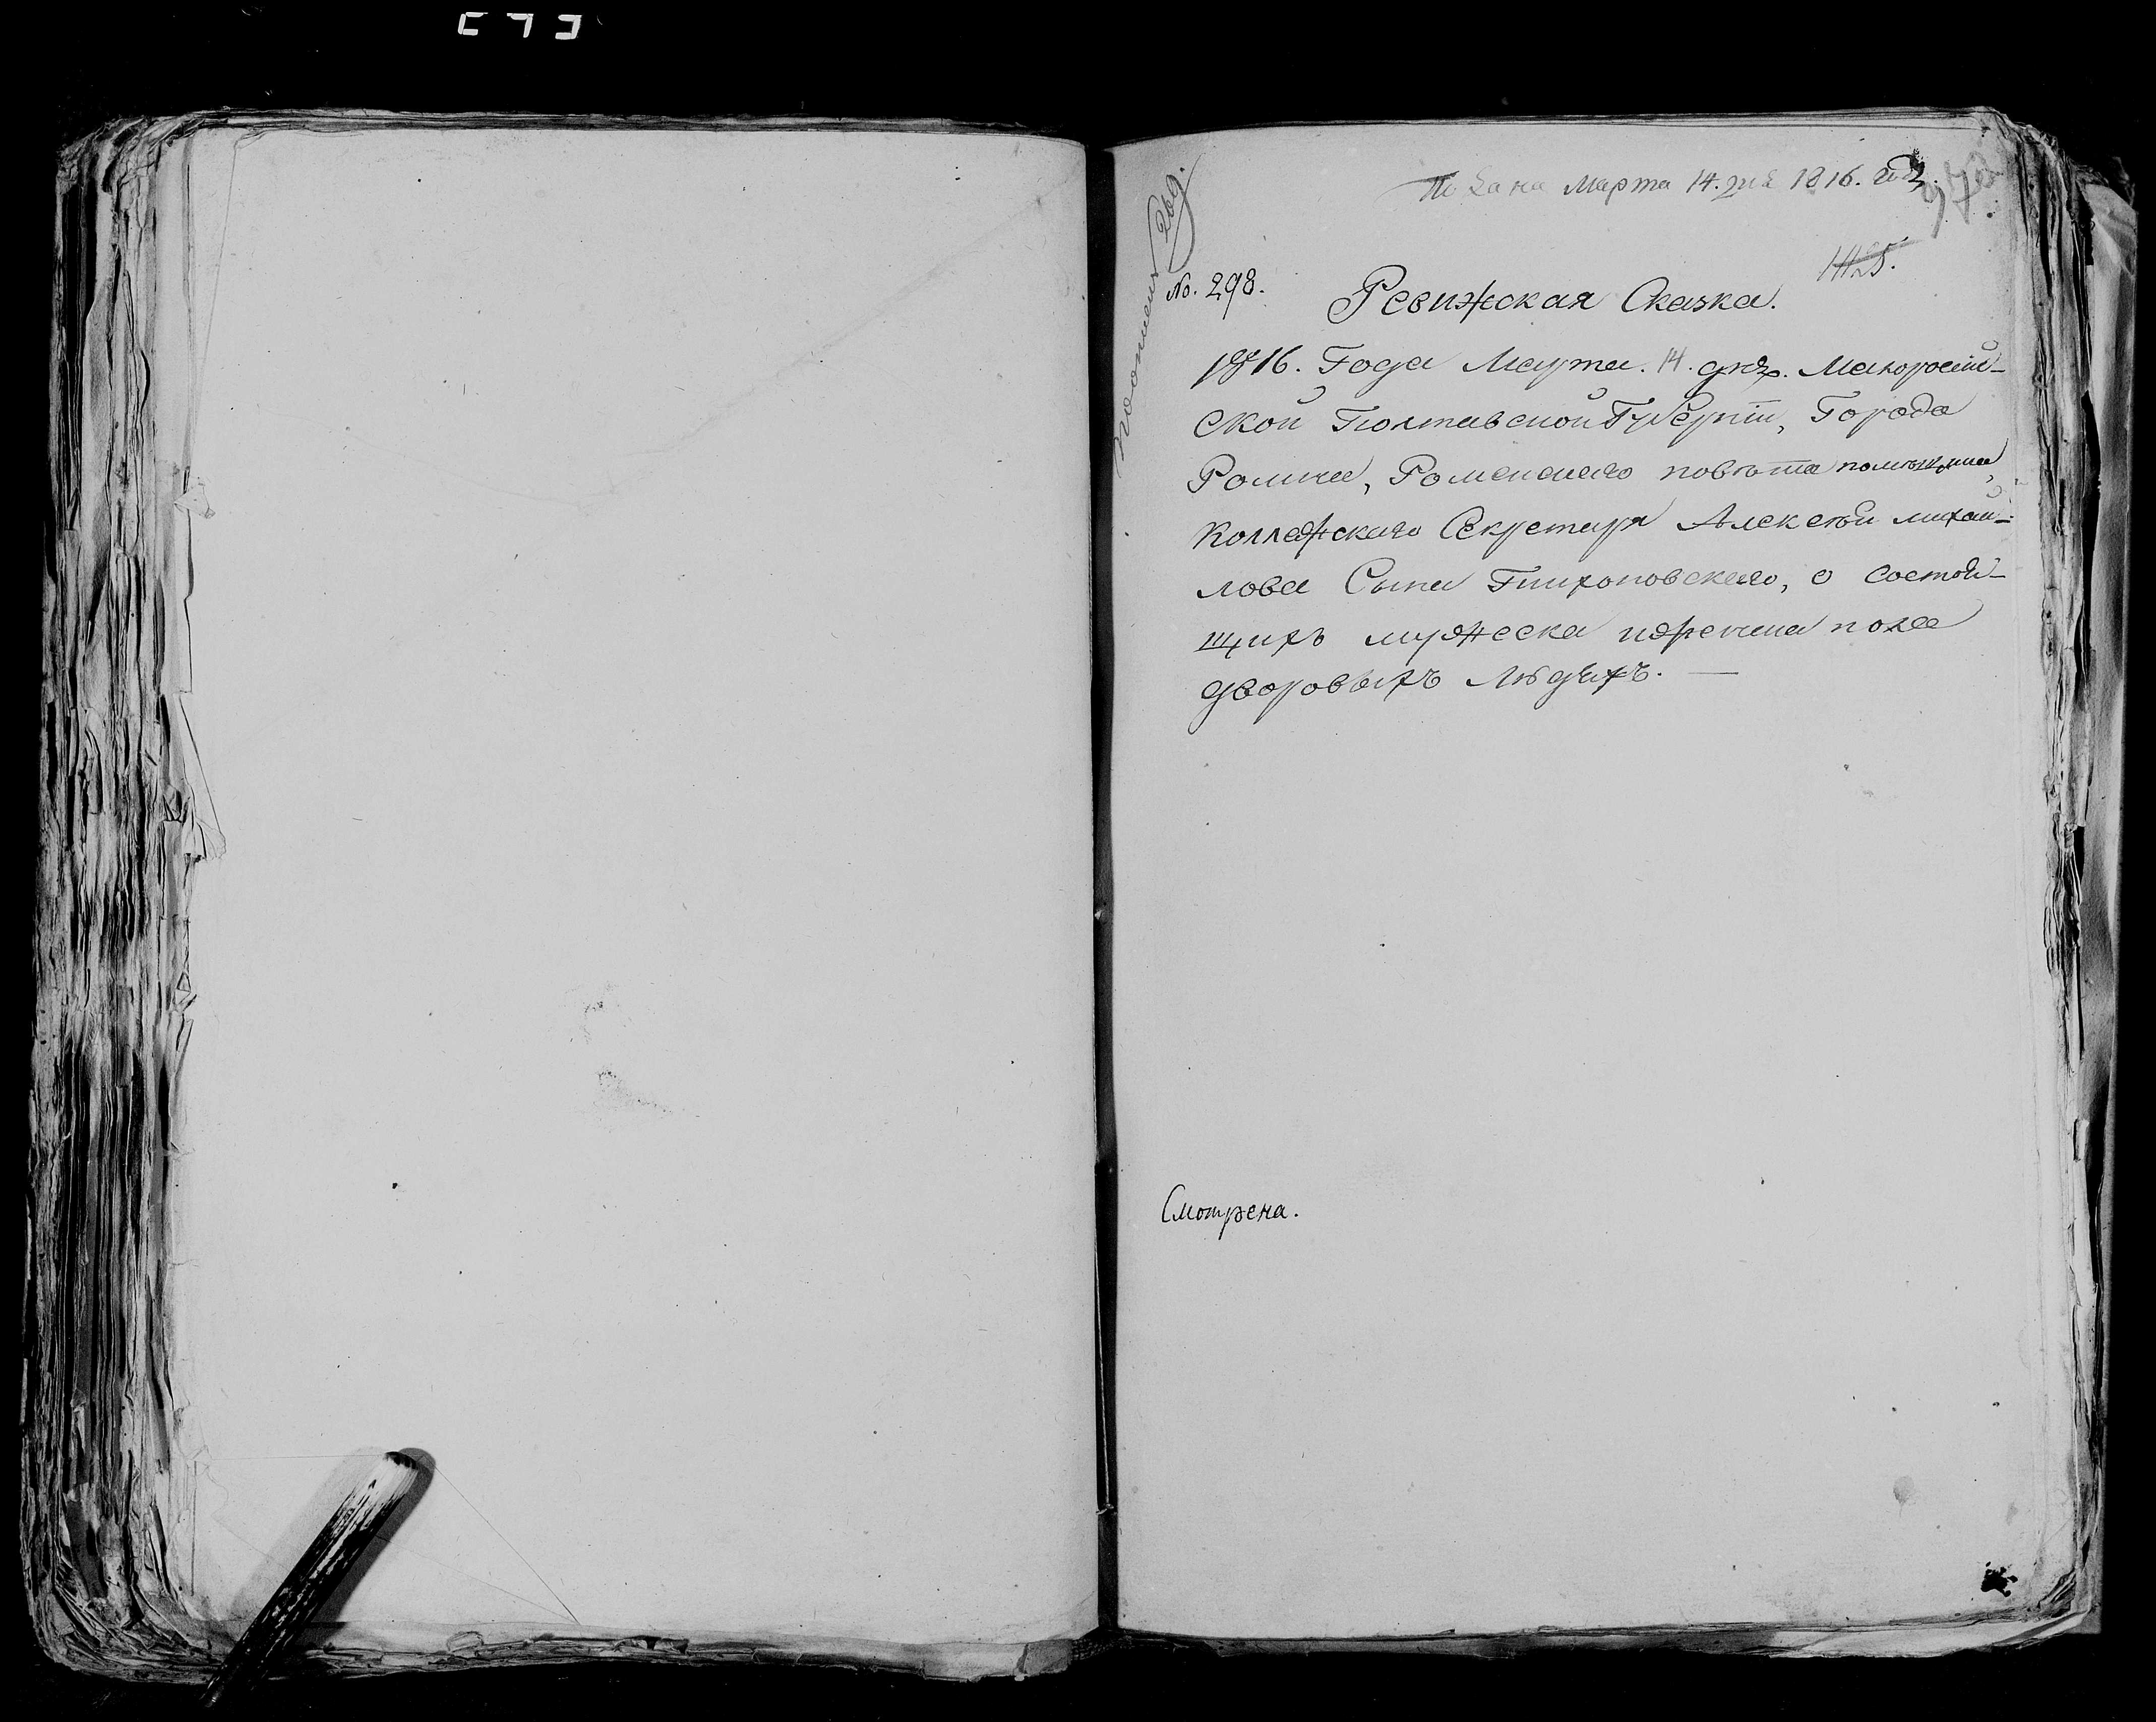 Подана Марта 14. дня 1816. года.
1125.
No. 298.
269.
Ревижская Сказка.
1816. Года Марта. 14. дня. Малоросій-
ской Полтавской Губерніи, Города
Ромна, Роменского повѣта помѣщика,
Коллежскаго Секретаря Алексѣя михай-
лова Сына Тихоновскаго, о состои-
щихъ мужеска иженска пола
дворовыхъ Людехъ. —
Смотрена.